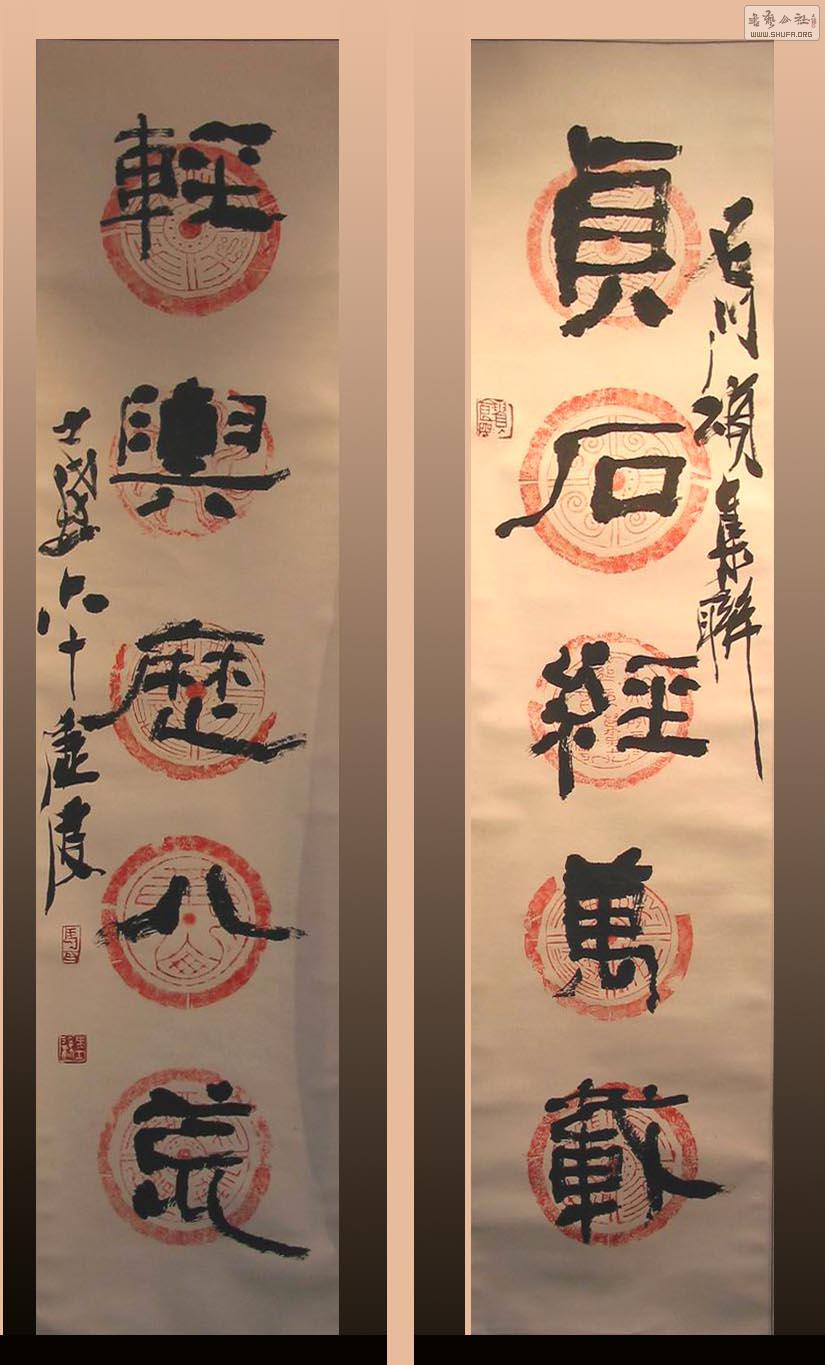 石門頌集聯
貞石經萬載
輕輿歷八荒
士達六十
書藝公社
WWW.SHUFA.ORG